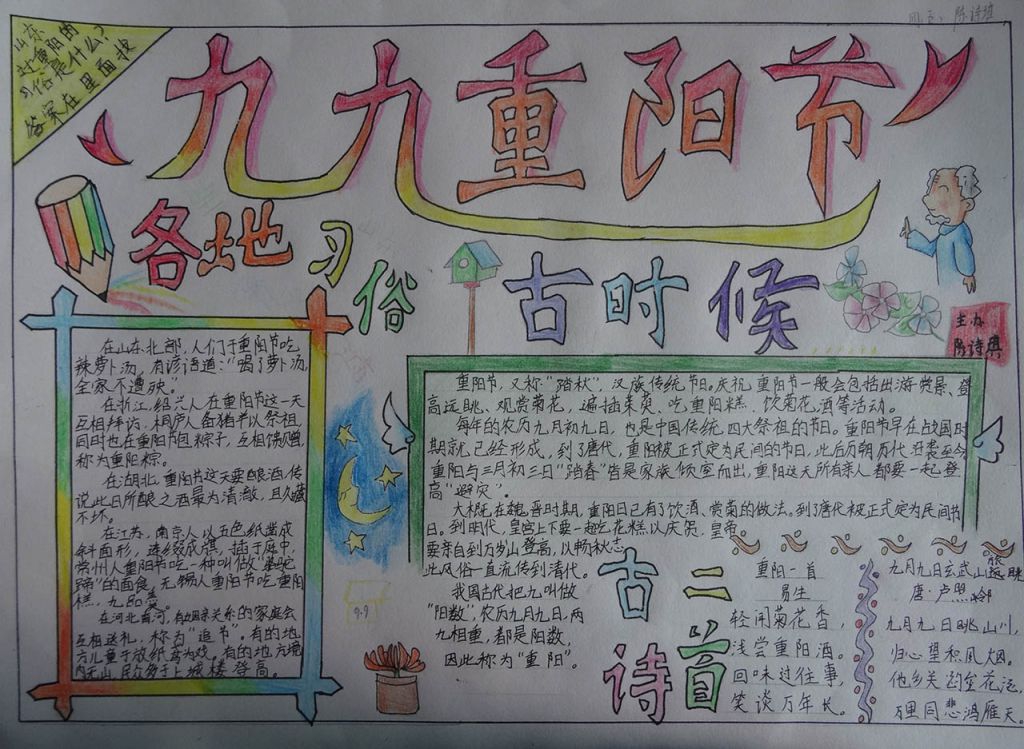 山东
过重阳的
习俗是什么?
答案在里面找
九九重阳节
各地习俗
古时候
主办
陈诗琪
在山东北部,人们于重阳节吃
辣萝卜汤,有谚语道:“喝了萝卜汤,
全家不遭殃”。
在浙江,绍兴人在重阳节这一天
互相拜访,桐庐人备猪羊以祭祖,
同时也在重阳节包粽子,互相馈赠,
称为重阳粽。
在湖北,重阳节这天要酿酒,传
说此日所酿之酒最为清澈,且久藏
不坏。
在江苏,南京人以五色纸凿成
斜面形,连缀成旗,插于庭中,
常州人重阳节吃一种叫做“骆驼
蹄”的面食,无锡人重阳节吃重阳
糕,九品羹。
在河北香河,有姻亲关系的家庭会
互相送礼,称为“追节”。有的地
方儿童于放纸鸢为戏,有的地方境
内无山,民众多于上城楼登高。
重阳节,又称“踏秋”,汉族传统节日。庆祝重阳节一般会包括出游赏景、登
高远眺、观赏菊花,遍插茱萸、吃重阳糕、饮菊花酒等活动。
每年的农历九月初九日,也是中国传统四大祭祖的节日。重阳节早在战国时
期就已经形成,到了唐代,重阳被正式定为民间的节日,此后历朝历代沿袭至今
重阳与三月初三日“踏春”皆是家族倾室而出,重阳这天所有亲人都要一起登
高“避灾”。
大概在魏晋时期,重阳日已有了饮酒、赏菊的做法。到了唐代被正式定为民间节
日。到明代,皇宫上下要一起吃花糕以庆贺,皇帝
要亲自到万岁山登高,以畅秋志
此风俗一直流传到清代。
我国古代把九叫做
“阳数”,农历九月九日,两
九相重,都是阳数,
因此称为“重阳”。
9.9
古诗二首
重阳一首
易生
轻闲菊花香,
浅尝重阳酒。
回味过往事,
笑谈万年长。
九月九日玄武山旅眺
唐·卢照邻
九月九日眺山川,
归心望积风烟。
他乡共
万里同悲鸿雁天。